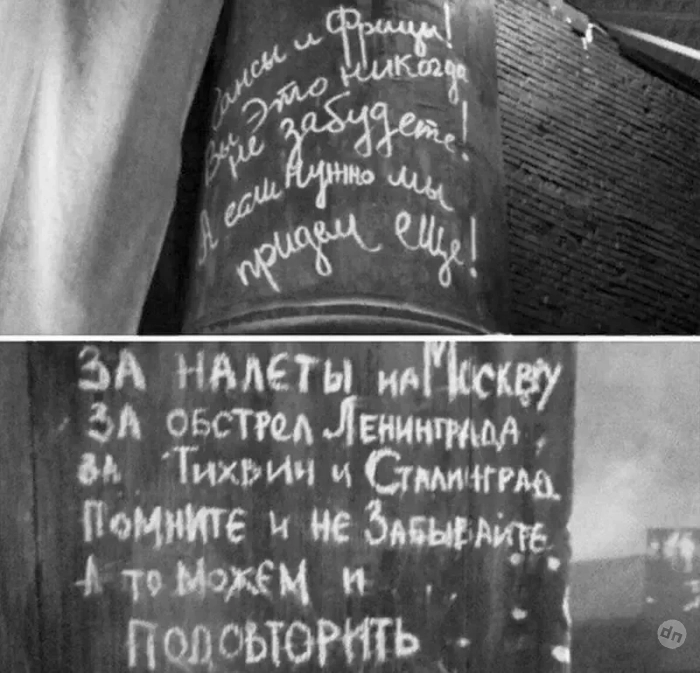 Гансы и Фрицы!
Вы это никогда
не забудете!
А если нужно мы
придем еще!
ЗА НАЛЕТЫ НА МОСКВУ
ЗА ОБСТРЕЛ ЛЕНИНГРАДА,
ЗА ТИХВИН И СТАЛИНГРАД.
ПОМНИТЕ И НЕ ЗАБЫВАЙТЕ.
А ТО МОЖЕМ И
ПОДОВТОРИТЬ
dn